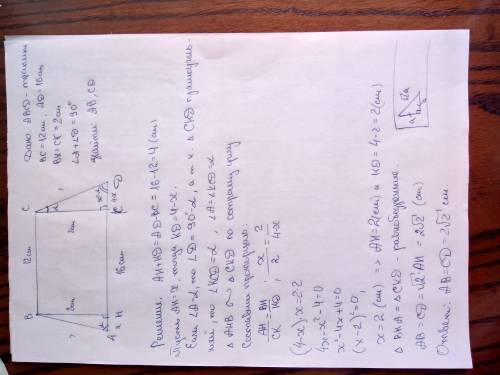 Дано: ABCD - трапеция
BC = 12 см, AD = 16 см
BH = CK = 2 см
∠A + ∠D = 90°
Найти: AB, CD
B 12 см C
? 2 см 2 см α ?
A x H 16 см K 4-x D
Решение. AH + KD = AD - BC = 16 - 12 = 4 (см)
Пусть AH = x, тогда KD = 4 - x.
Если ∠A = α, то ∠D = 90° - α, а т.к. △ CKD прямоуголь-
ный, то ∠KCD = α, ∠A = ∠KCD = α
△ AHB ∾ △ CKD по острому углу
Составим пропорцию:
AH/CK = BH/KD, x/2 = 2/(4-x)
(4-x)·x = 2·2
4x - x² - 4 = 0
x² - 4x + 4 = 0
(x-2)² = 0,
x = 2 (см) => AH = 2 (см) и KD = 4 - 2 = 2 (см)
△ BHA = △ CKD - равнобедренные.
AB = CD = √2 AH = 2√2 (см)
Ответ: AB = CD = 2√2 см
a √2a a